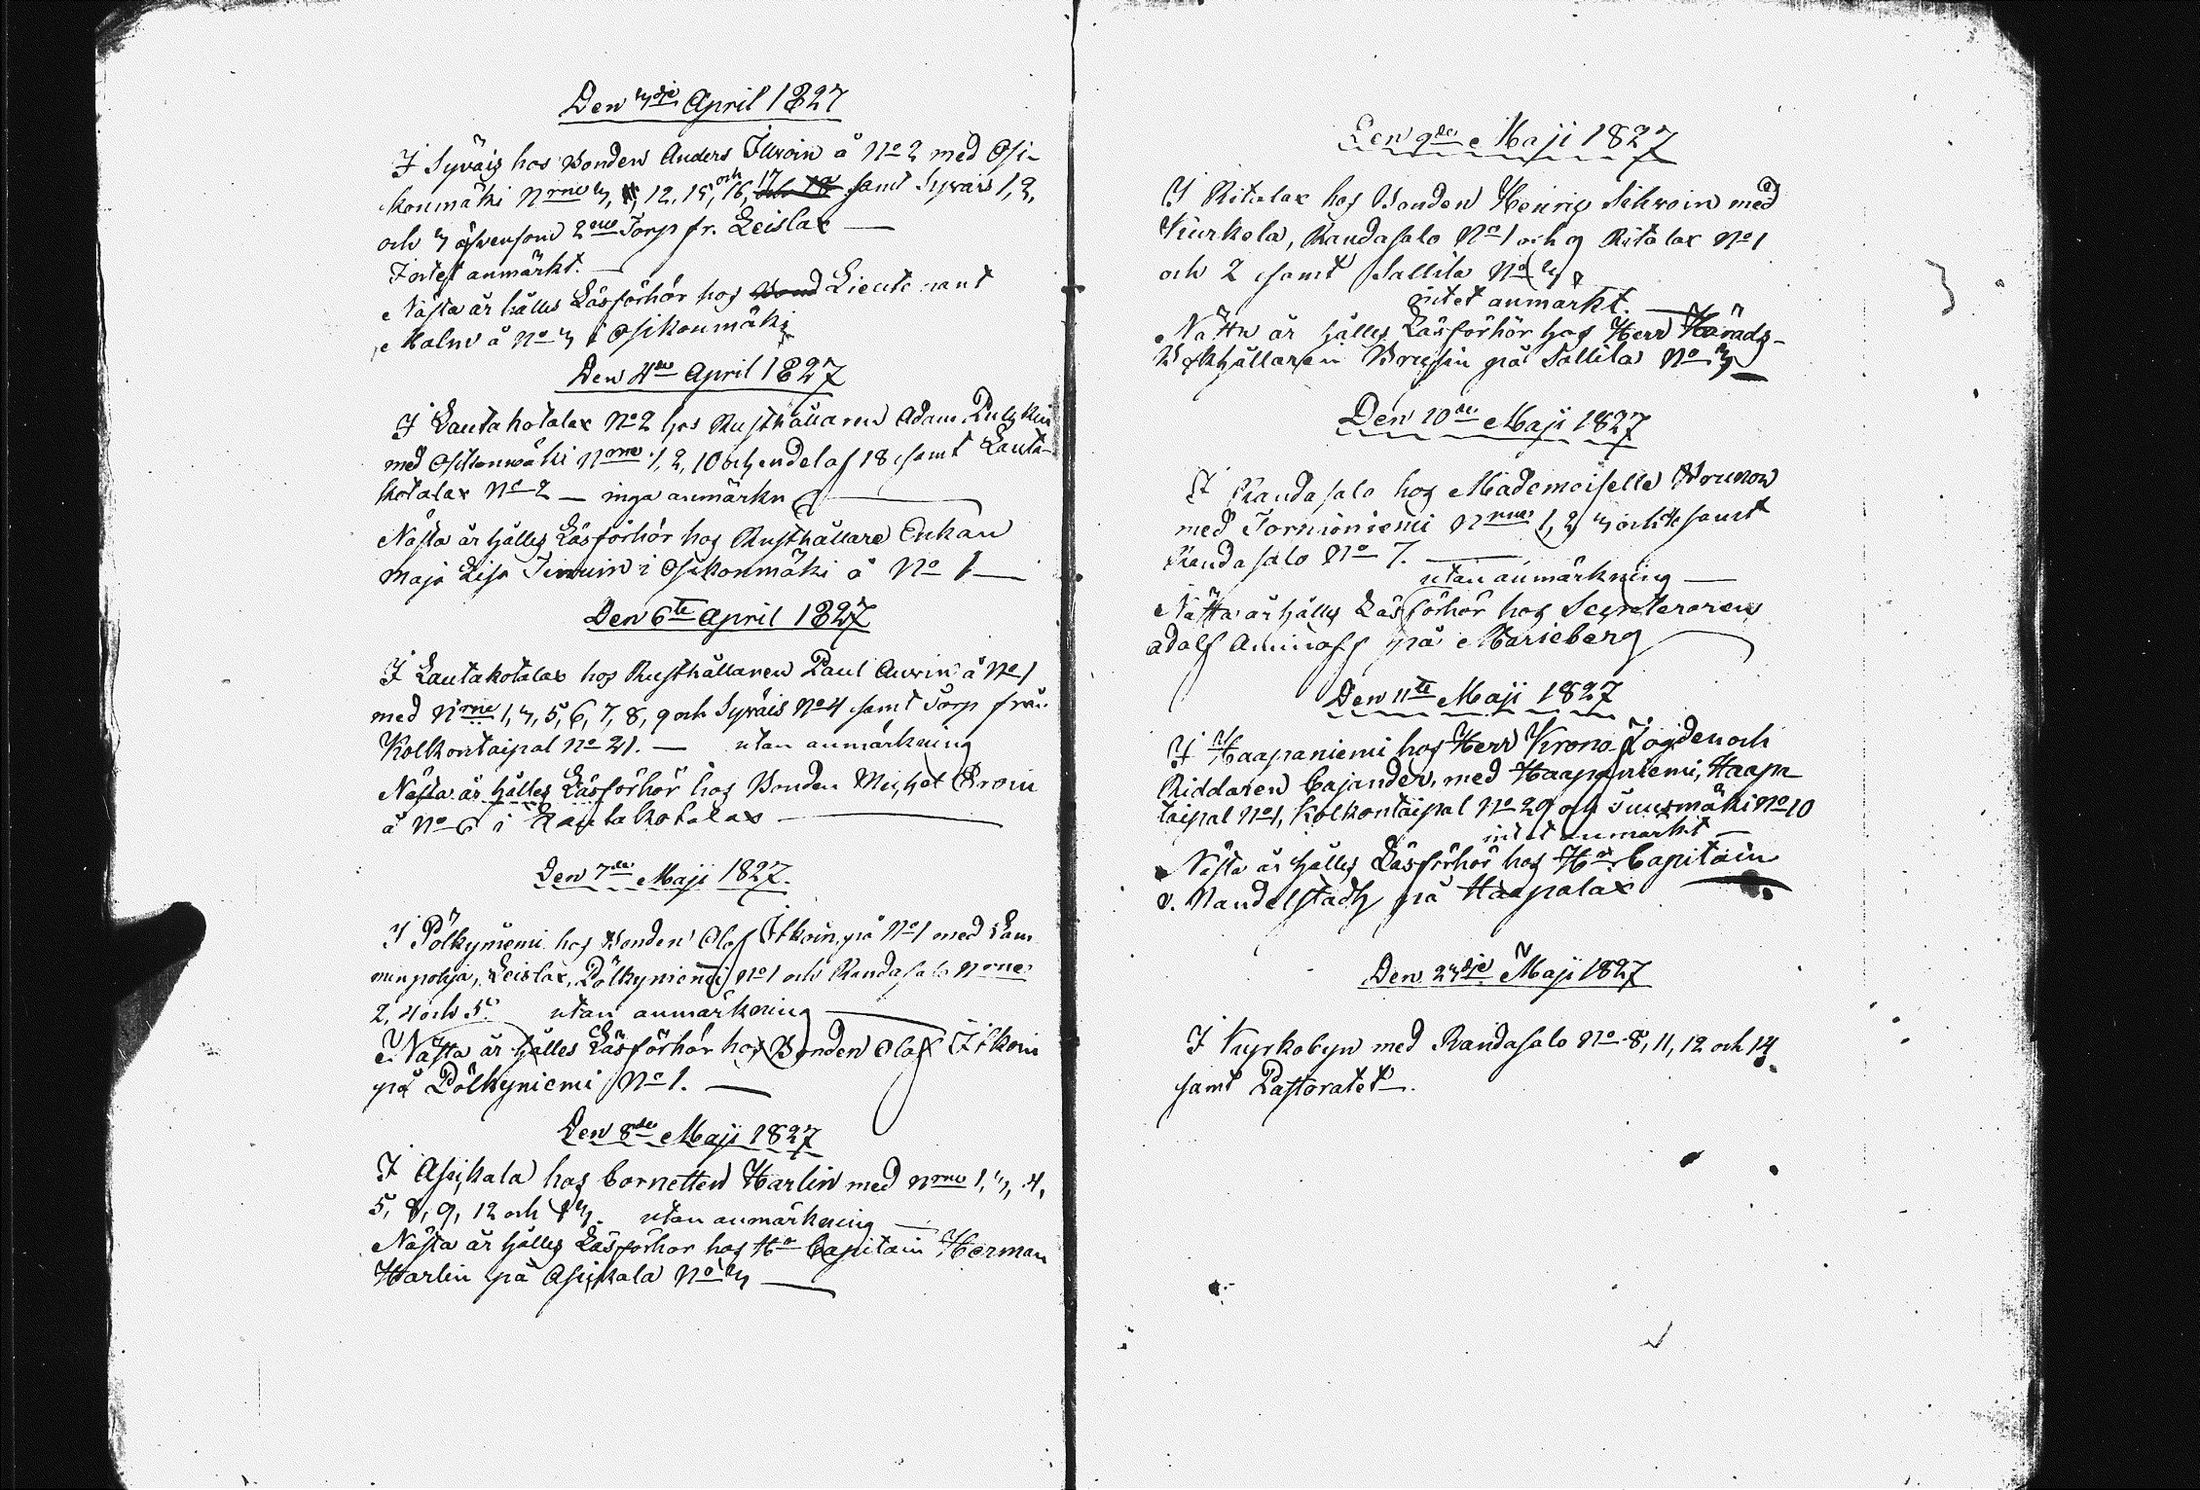 Den 3dje April 1827
I Syväis hos Bonden Anders Ikoin å No 2 med Osi-
konmäki Nrne 3, 12, 15, och 16, 17 samt Syväis 1, 2,
och 3 äfvensom 2ne Torp fr. Leislax
Intet anmärkt.
Nästa år hålles Läsförhör hos Lieutenant
Malm å No 3 i Osikonmäki
Den 4de April 1827
I Lautakotalax No 2 hos Rusthållaren Adam Pulkkin
med Osikonmäki Nrne 1, 2, 10 och endel af 18 samt Lauta-
kotalax No 2 — inga anmärkn
Nästa år hålles Läsförhör hos Rusthållare Enkan
Maja Lisa Immin i Osikonmäki å No 1
Den 6te April 1827
I Lautakotalax hos Rusthållaren Paul Auvin å No 1
med Nrne 1, 3, 5, 6, 7, 8, 9 och Syväis No 4 samt Torp från
Kolkontaipal No 21. — utan anmärkning
Nästa år hålles Läsförhör hos Bonden Michel
å No 6 i Lautakotalax
Den 7de Maji 1827.
I Pölkyniemi hos Bonden Olof Itkoin på No 1 med Lam
minpohja, Leislax, Pölkyniemi No 1 och Randasalo Nrne
2, 4 och 5. utan anmärkning
Nästa år hålles Läsförhör hos Bonden Olof Itkoin
på Pölkyniemi No 1.
Den 8de Maji 1827
I Asikala hos Cornetten Harlin med Nrne 1, 3, 4,
5, 8, 9, 12 och 13. utan anmärkning
Nästa år hålles Läsförhör hos Hr Capitain Herman
Harlin på Asikala No 3
Den 9de Maji 1827
I Ritolax hos Bonden Henric Sihvoin med
Kurkela, Randasalo No 1 och 9 Ritolax No 1
och 2 samt Sallila No 3
intet anmärkt.
Nästa år hålles Läsförhör hos Herr Härads-
Bokhållaren på Sallila No 3
Den 10de Maji 1827
I Randasalo hos Mademoiselle Brunow
med Tornioniemi Nrne 1, 2, 3 och 4 samt
Randasalo No 7.
utan anmärkning
Nästa år hålles Läsförhör hos Secreteraren
Adolf Aminoff på Marieberg
Den 11te Maji 1827
I Haapaniemi hos Herr Krono Fogden och
Riddaren Cajander, med Haapaniemi, Haapa
taipal No 1, Kolkontaipal No 29 och Suurmäki No 10
intet anmärkt
Nästa år hålles Läsförhör hos Hr Capitain
v. Nandelstadh på Haapalax
Den 23dje Maji 1827
I Kyrkobyn med Randasalo No 8, 11, 12 och 14
samt Pastoratet.